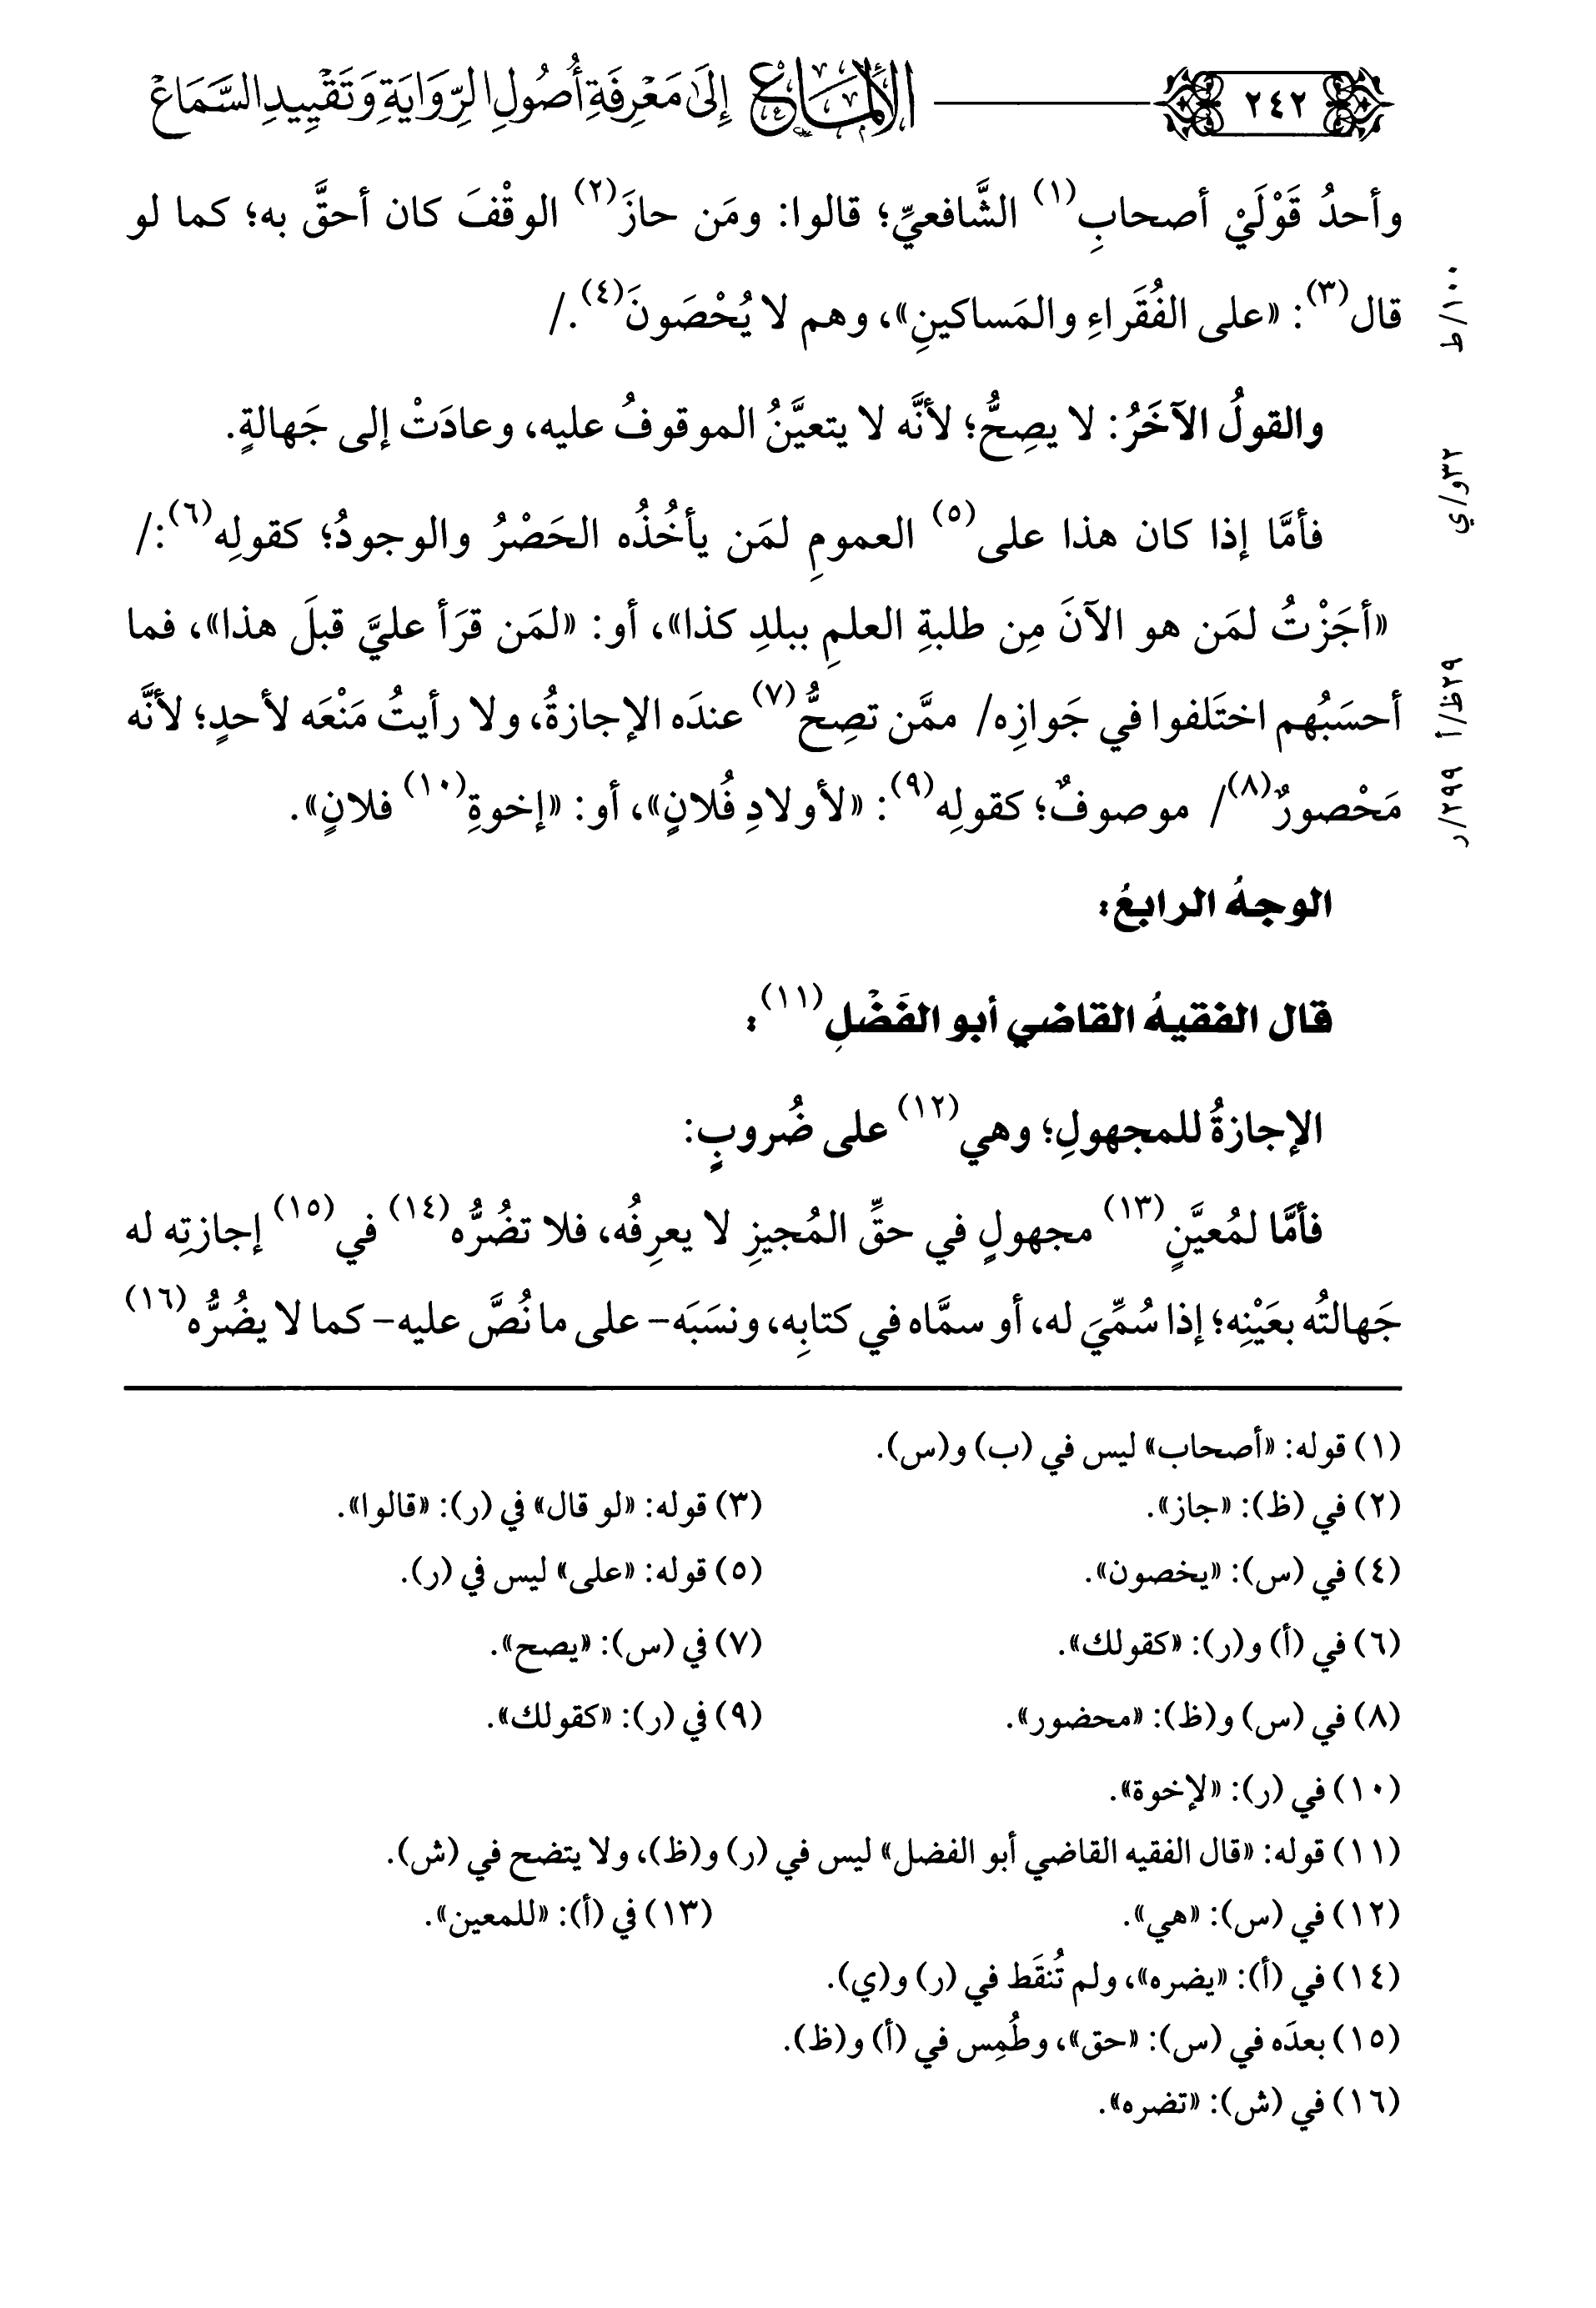 ٢٤٢ الإلماع إلى مَعْرِفَةِ أُصُولِ الرِّوَايَةِ وَتَقْيِيدِ السَّمَاعْ
وأحدُ قَوْلَيْ أصحابِ(١) الشَّافعيِّ؛ قالوا: ومَن حازَ(٢) الوقْفَ كان أحقَّ به؛ كما لو
قال(٣): «على الفُقَراءِ والمَساكينِ»، وهم لا يُحْصَونَ(٤)./
١٠٠/ط
والقولُ الآخَرُ: لا يصِحُّ؛ لأنَّه لا يتعيَّنُ الموقوفُ عليه، وعادَتْ إلى جَهالةٍ.
فأمَّا إذا كان هذا على(٥) العمومِ لمَن يأخُذُه الحَصْرُ والوجودُ؛ كقولِه(٦):/
٣٢و/ي
«أجَزْتُ لمَن هو الآنَ مِن طلبةِ العلمِ ببلدِ كذا»، أو: «لمَن قرَأ عليَّ قبلَ هذا»، فما
أحسَبُهم اختَلفوا في جَوازِه/ ممَّن تصِحُّ(٧) عندَه الإجازةُ، ولا رأيتُ مَنْعَه لأحدٍ؛ لأنَّه
٢٩ظ/أ
مَحْصورٌ(٨)/ موصوفٌ؛ كقولِه(٩): «لأولادِ فُلانٍ»، أو: «إخوةِ(١٠) فلانٍ».
٢٩٩/ر
الوجهُ الرابعُ:
قال الفقيهُ القاضي أبو الفَضْلِ(١١):
الإجازةُ للمجهولِ؛ وهي(١٢) على ضُروبٍ:
فأمَّا لمُعيَّنٍ(١٣) مجهولٍ في حقِّ المُجيزِ لا يعرِفُه، فلا تضُرُّه(١٤) في(١٥) إجازتِه له
جَهالتُه بعَيْنِه؛ إذا سُمِّيَ له، أو سمَّاه في كتابِه، ونسَبَه- على ما نُصَّ عليه- كما لا يضُرُّه(١٦)
(١) قوله: «أصحاب» ليس في (ب) و(س).
(٢) في (ظ): «جاز». (٣) قوله: «لو قال» في (ر): «قالوا».
(٤) في (س): «يخصون». (٥) قوله: «على» ليس في (ر).
(٦) في (أ) و(ر): «كقولك». (٧) في (س): «يصح».
(٨) في (س) و(ظ): «محضور». (٩) في (ر): «كقولك».
(١٠) في (ر): «لإخوة».
(١١) قوله: «قال الفقيه القاضي أبو الفضل» ليس في (ر) و(ظ)، ولا يتضح في (ش).
(١٢) في (س): «هي». (١٣) في (أ): «للمعين».
(١٤) في (أ): «يضره»، ولم تُنقَط في (ر) و(ي).
(١٥) بعدَه في (س): «حق»، وطُمِس في (أ) و(ظ).
(١٦) في (ش): «تضره».